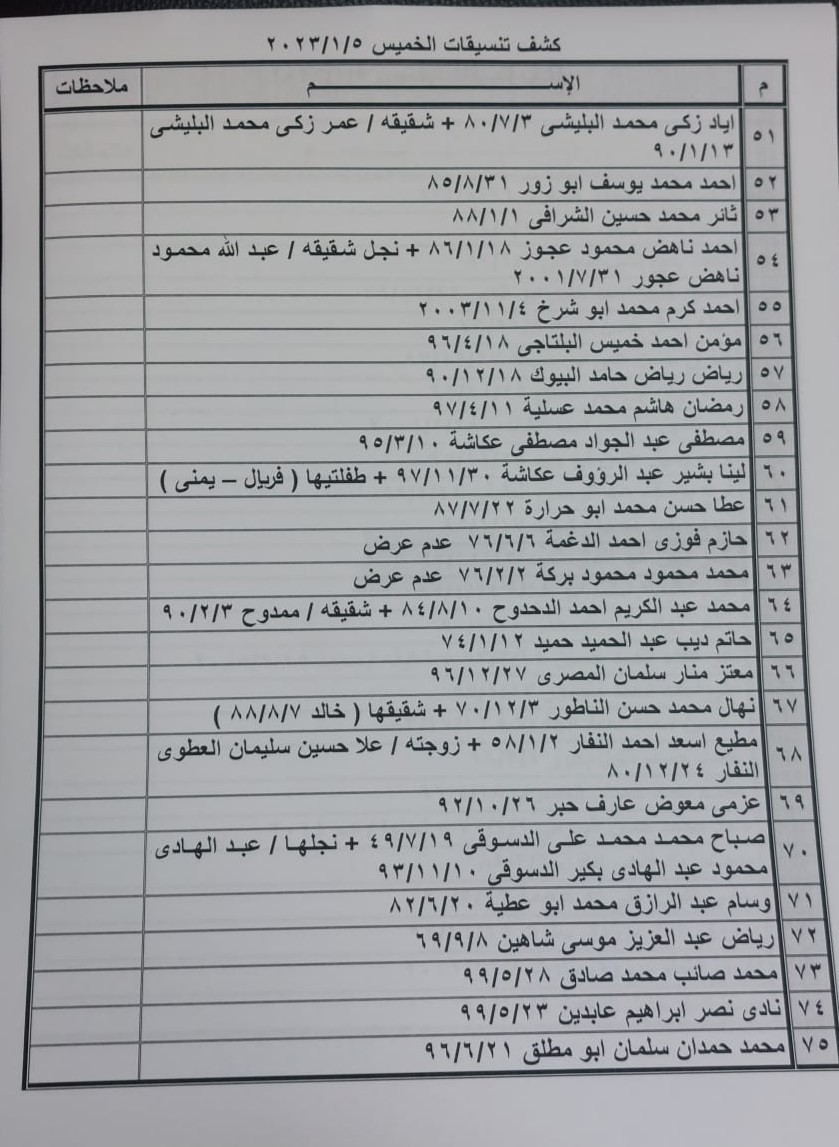 كشف تنسيقات الخميس ٢٠٢٣/١/٥
م الإســـــــــــم ملاحظات
٥١ اياد زكى محمد البليشى ٨٠/٧/٣ + شقيقه / عمر زكى محمد البليشى
٩٠/١/١٣
٥٢ احمد محمد يوسف ابو زور ٨٥/٨/٣١
٥٣ ثائر محمد حسين الشرافى ٨٨/١/١
٥٤ احمد ناهض محمود عجوز ٨٦/١/١٨ + نجل شقيقه / عبد الله محمود
ناهض عجور ٢٠٠١/٧/٣١
٥٥ احمد كرم محمد ابو شرخ ٢٠٠٣/١١/٤
٥٦ مؤمن احمد خميس البلتاجى ٩٦/٤/١٨
٥٧ رياض رياض حامد البيوك ٩٠/١٢/١٨
٥٨ رمضان هاشم محمد عسلية ٩٧/٤/١١
٥٩ مصطفى عبد الجواد مصطفى عكاشة ٩٥/٣/١٠
٦٠ لينا بشير عبد الرؤوف عكاشة ٩٧/١١/٣٠ + طفلتيها ( فريال – يمنى )
٦١ عطا حسن محمد ابو حرارة ٨٧/٧/٢٢
٦٢ حازم فوزى احمد الدغمة ٧٦/٦/٦ عدم عرض
٦٣ محمد محمود محمود بركة ٧٦/٢/٢ عدم عرض
٦٤ محمد عبد الكريم احمد الدحدوح ٨٤/٨/١٠ + شقيقه / ممدوح ٩٠/٢/٣
٦٥ حاتم ديب عبد الحميد حميد ٧٤/١/١٢
٦٦ معتز منار سلمان المصرى ٩٦/١٢/٢٧
٦٧ نهال محمد حسن الناطور ٧٠/١٢/٣ + شقيقها ( خالد ٨٨/٨/٧ )
٦٨ مطيع اسعد احمد النفار ٥٨/١/٢ + زوجته / علا حسين سليمان العطوى
النفار ٨٠/١٢/٢٤
٦٩ عزمى معوض عارف حبر ٩٢/١٠/٢٦
٧٠ صباح محمد محمد على الدسوقى ٤٩/٧/١٩ + نجلها / عبد الهادى
محمود عبد الهادى بكير الدسوقى ٩٣/١١/١٠
٧١ وسام عبد الرازق محمد ابو عطية ٨٢/٦/٢٠
٧٢ رياض عبد العزيز موسى شاهين ٦٩/٩/٨
٧٣ محمد صائب محمد صادق ٩٩/٥/٢٨
٧٤ نادى نصر ابراهيم عابدين ٩٩/٥/٢٣
٧٥ محمد حمدان سلمان ابو مطلق ٩٦/٦/٢١